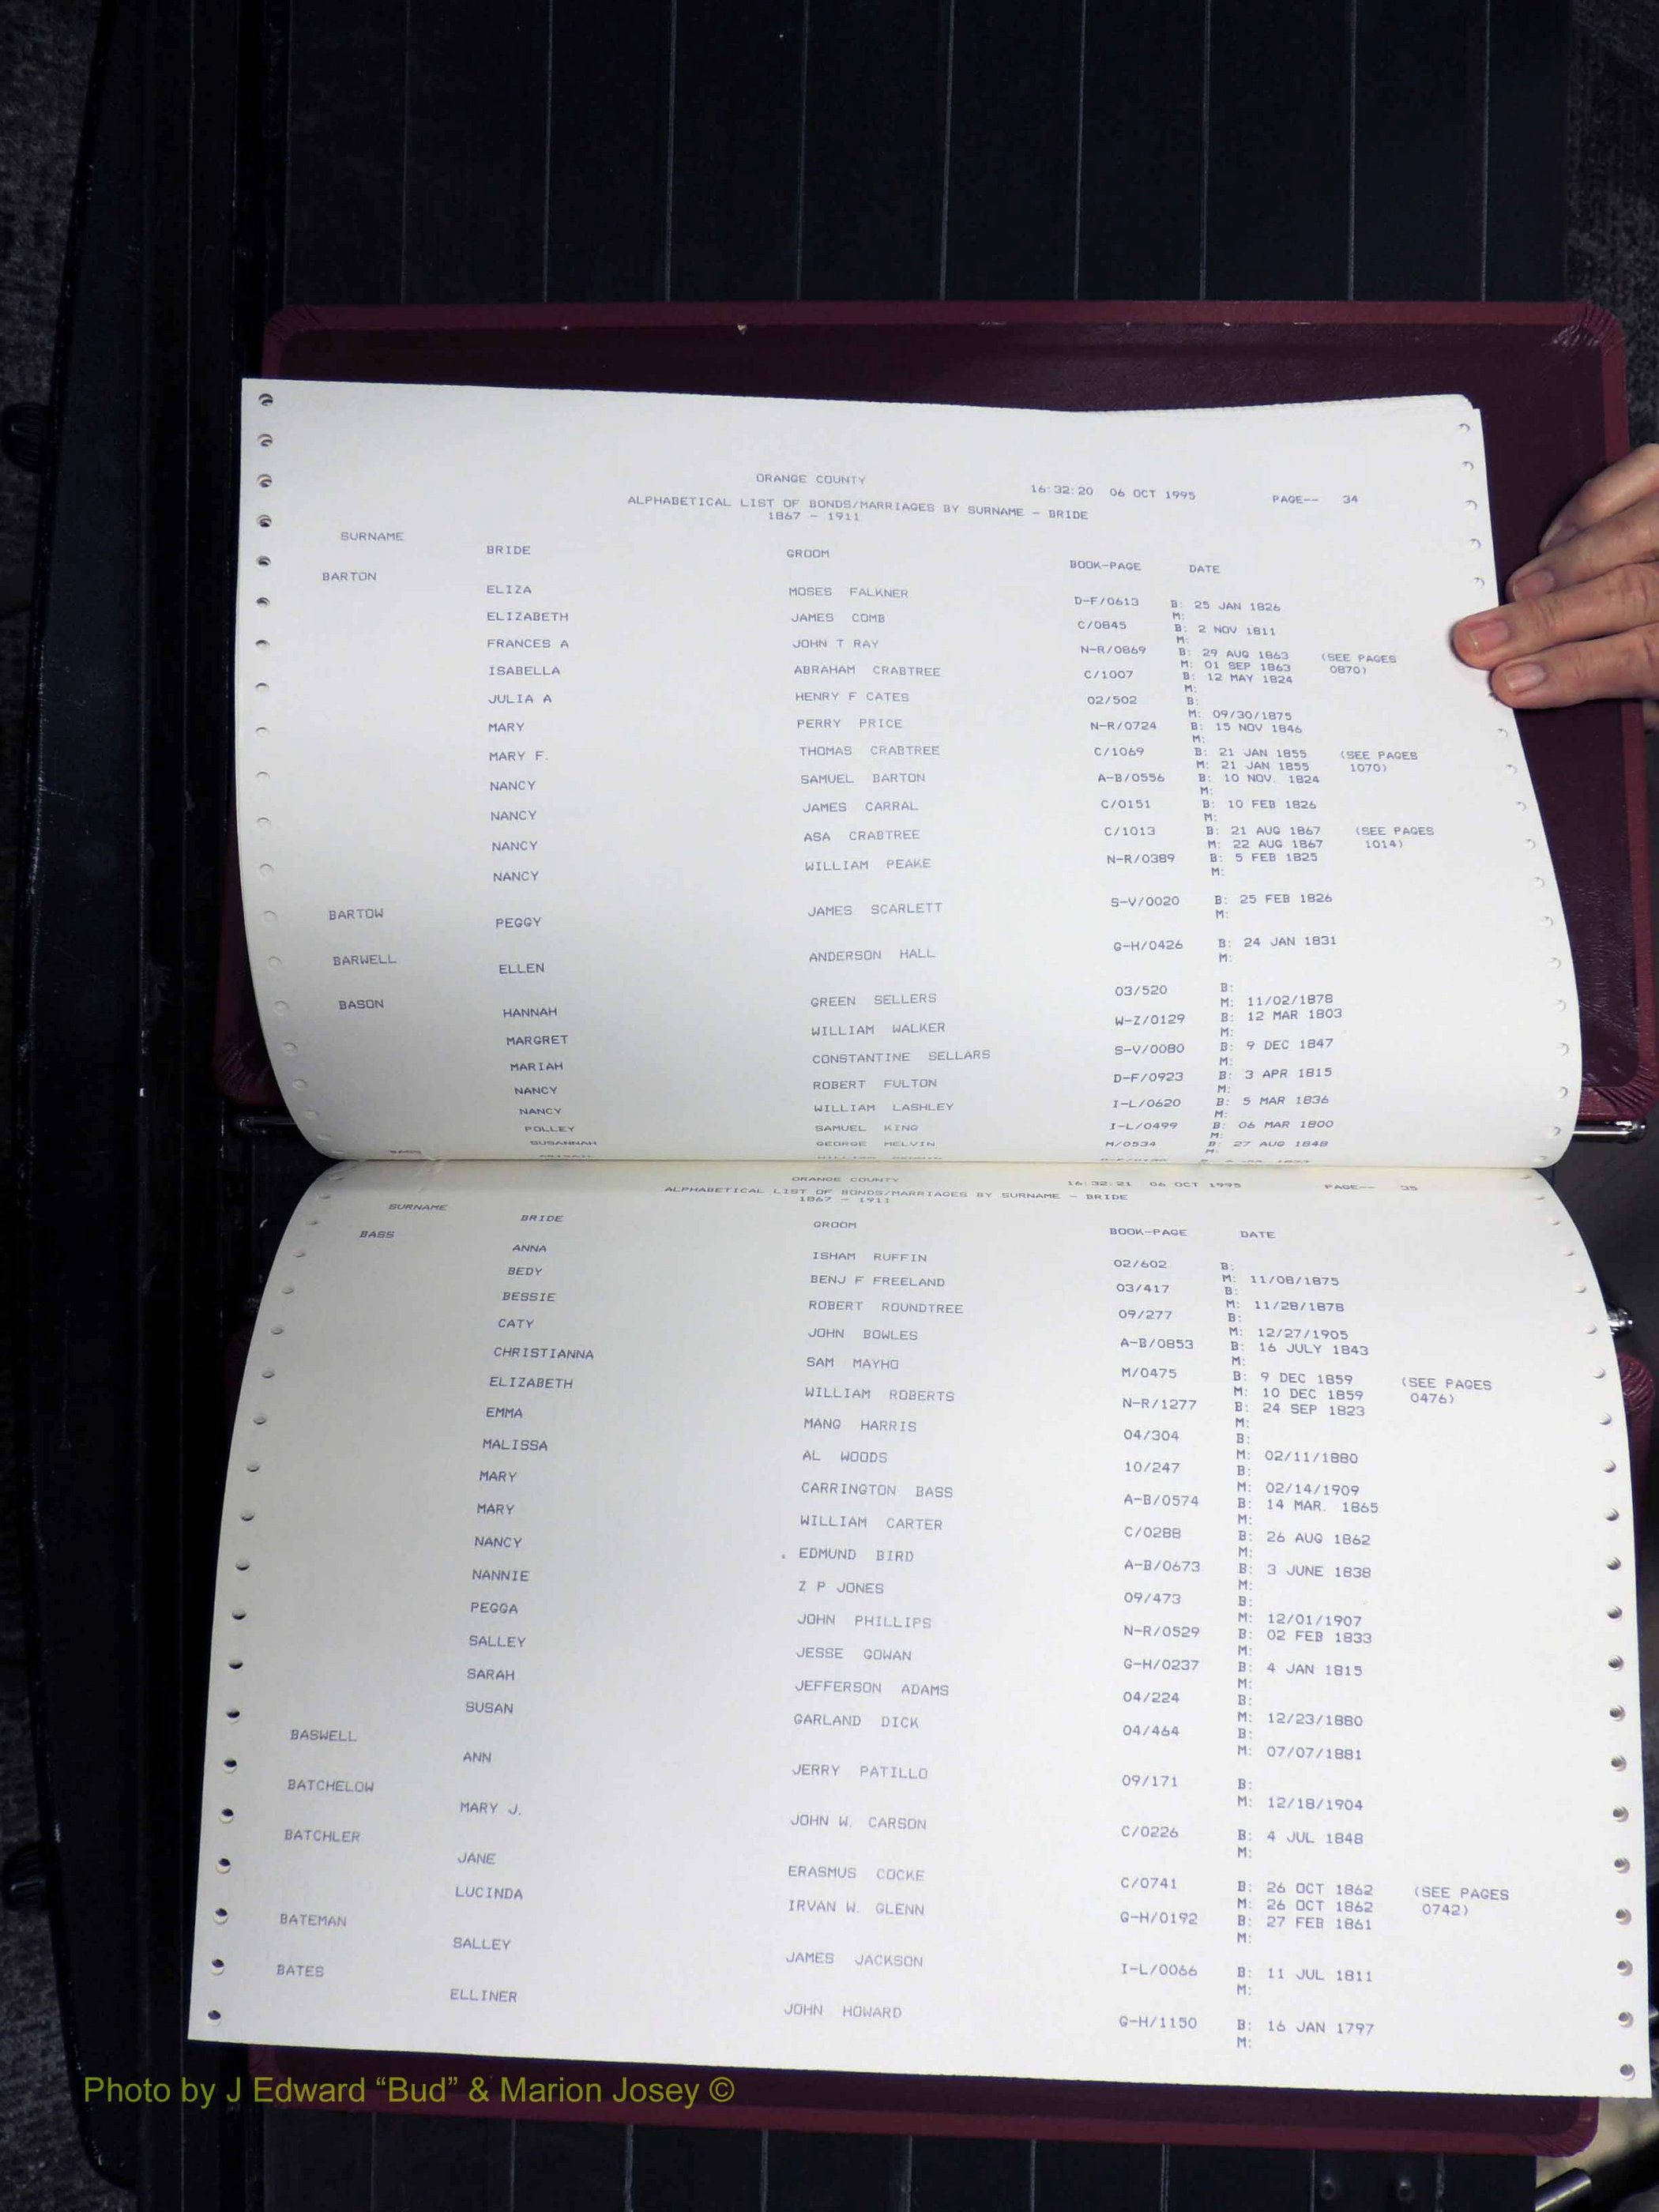 ORANGE COUNTY 16:32:20 06 OCT 1995 PAGE-- 34
ALPHABETICAL LIST OF BONDS/MARRIAGES BY SURNAME - BRIDE
1867 - 1911
SURNAME BRIDE GROOM BOOK-PAGE DATE
BARTON
ELIZA MOSES FALKNER D-F/0613 B: 25 JAN 1826
M:
ELIZABETH JAMES COMB C/0845 B: 2 NOV 1811
M:
FRANCES A JOHN T RAY N-R/0869 B: 29 AUG 1863 (SEE PAGES
M: 01 SEP 1863 0870)
ISABELLA ABRAHAM CRABTREE C/1007 B: 12 MAY 1824
M:
JULIA A HENRY F CATES 02/502 B:
M: 09/30/1875
MARY PERRY PRICE N-R/0724 B: 15 NOV 1846
M:
MARY F. THOMAS CRABTREE C/1069 B: 21 JAN 1855 (SEE PAGES
M: 21 JAN 1855 1070)
NANCY SAMUEL BARTON A-B/0556 B: 10 NOV. 1824
M:
NANCY JAMES CARRAL C/0151 B: 10 FEB 1826
M:
NANCY ASA CRABTREE C/1013 B: 21 AUG 1867 (SEE PAGES
M: 22 AUG 1867 1014)
NANCY WILLIAM PEAKE N-R/0389 B: 5 FEB 1825
M:
BARTOW
PEGGY JAMES SCARLETT S-V/0020 B: 25 FEB 1826
M:
BARWELL
ELLEN ANDERSON HALL G-H/0426 B: 24 JAN 1831
M:
BASON
HANNAH GREEN SELLERS 03/520 B:
M: 11/02/1878
MARGRET WILLIAM WALKER W-Z/0129 B: 12 MAR 1803
M:
MARIAH CONSTANTINE SELLARS S-V/0080 B: 9 DEC 1847
M:
NANCY ROBERT FULTON D-F/0923 B: 3 APR 1815
M:
NANCY WILLIAM LASHLEY I-L/0620 B: 5 MAR 1836
M:
POLLEY SAMUEL KING I-L/0499 B: 06 MAR 1800
M:
SUSANNAH GEORGE MELVIN M/0534 B: 27 AUG 1848
M:
BASS
ORANGE COUNTY 16:32:21 06 OCT 1995 PAGE-- 35
ALPHABETICAL LIST OF BONDS/MARRIAGES BY SURNAME - BRIDE
1867 - 1911
SURNAME BRIDE GROOM BOOK-PAGE DATE
BASS
ANNA ISHAM RUFFIN 02/602 B:
M: 11/08/1875
BEDY BENJ F FREELAND 03/417 B:
M: 11/28/1878
BESSIE ROBERT ROUNDTREE 09/277 B:
M: 12/27/1905
CATY JOHN BOWLES A-B/0853 B: 16 JULY 1843
M:
CHRISTIANNA SAM MAYHO M/0475 B: 9 DEC 1859 (SEE PAGES
M: 10 DEC 1859 0476)
ELIZABETH WILLIAM ROBERTS N-R/1277 B: 24 SEP 1823
M:
EMMA MANG HARRIS 04/304 B:
M: 02/11/1880
MALISSA AL WOODS 10/247 B:
M: 02/14/1909
MARY CARRINGTON BASS A-B/0574 B: 14 MAR. 1865
M:
MARY WILLIAM CARTER C/0288 B: 26 AUG 1862
M:
NANCY EDMUND BIRD A-B/0673 B: 3 JUNE 1838
M:
NANNIE Z P JONES 09/473 B:
M: 12/01/1907
PEGGA JOHN PHILLIPS N-R/0529 B: 02 FEB 1833
M:
SALLEY JESSE GOWAN G-H/0237 B: 4 JAN 1815
M:
SARAH JEFFERSON ADAMS 04/224 B:
M: 12/23/1880
SUSAN GARLAND DICK 04/464 B:
M: 07/07/1881
BASWELL
ANN JERRY PATILLO 09/171 B:
M: 12/18/1904
BATCHELOW
MARY J. JOHN W. CARSON C/0226 B: 4 JUL 1848
M:
BATCHLER
JANE ERASMUS COCKE C/0741 B: 26 OCT 1862 (SEE PAGES
M: 26 OCT 1862 0742)
LUCINDA IRVAN W. GLENN G-H/0192 B: 27 FEB 1861
M:
BATEMAN
SALLEY JAMES JACKSON I-L/0066 B: 11 JUL 1811
M:
BATES
ELLINER JOHN HOWARD G-H/1150 B: 16 JAN 1797
M:
Photo by J Edward “Bud” & Marion Josey ©